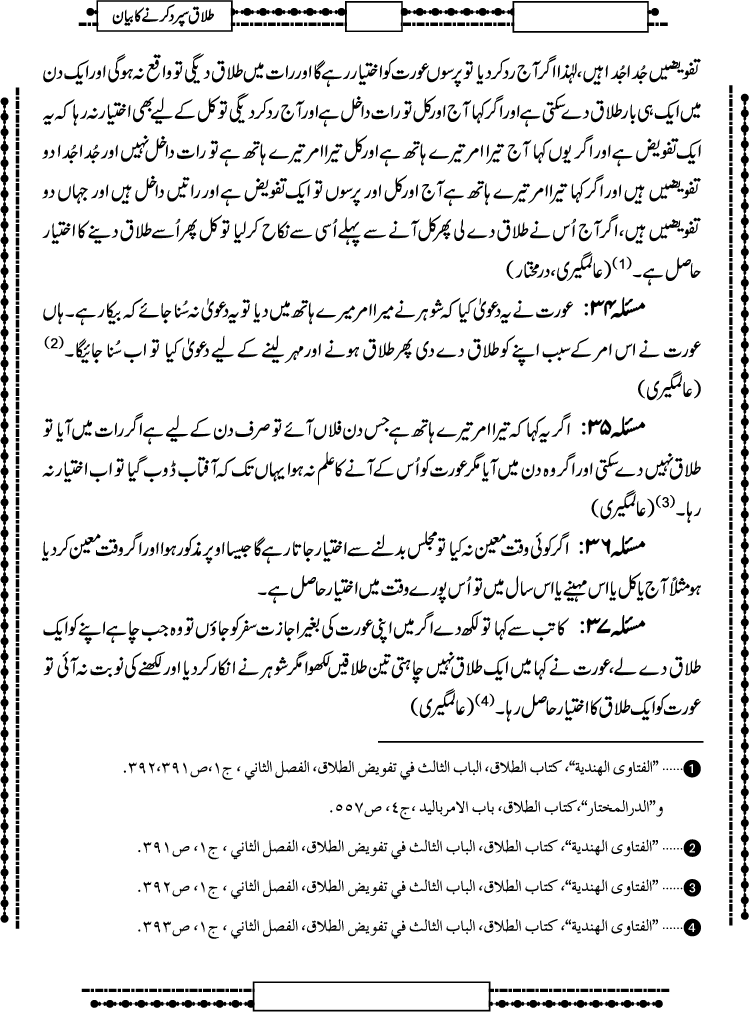 طلاق سپرد کرنے کا بیان
تفویضیں جُدا جُدا ہیں، لہٰذا اگر آج رد کر دیا تو پرسوں عورت کو اختیار رہے گا اور رات میں طلاق دیگی تو واقع نہ ہوگی اور ایک دن
میں ایک ہی بار طلاق دے سکتی ہے اور اگر کہا آج اور کل تو رات داخل ہے اور آج رد کر دیگی تو کل کے لیے بھی اختیار نہ رہا کہ یہ
ایک تفویض ہے اور اگر یوں کہا آج تیرا امر تیرے ہاتھ ہے اور کل تیرا امر تیرے ہاتھ ہے تو رات داخل نہیں اور جُدا جُدا دو
تفویضیں ہیں اور اگر کہا تیرا امر تیرے ہاتھ ہے آج اور کل اور پرسوں تو ایک تفویض ہے اور راتیں داخل ہیں اور جہاں دو
تفویضیں ہیں، اگر آج اُس نے طلاق دے لی پھر کل آنے سے پہلے اُسی سے نکاح کر لیا تو کل پھر اُسے طلاق دینے کا اختیار
حاصل ہے۔(1) (عالمگیری، درمختار)
مسئلہ ۳۴: عورت نے یہ دعویٰ کیا کہ شوہر نے میرا امر میرے ہاتھ میں دیا تو یہ دعویٰ نہ سُنا جائے کہ بیکار ہے۔ ہاں
عورت نے اس امر کے سبب اپنے کو طلاق دے دی پھر طلاق ہونے اور مہر لینے کے لیے دعویٰ کیا تو اب سُنا جائیگا۔(2)
(عالمگیری)
مسئلہ ۳۵: اگر یہ کہا کہ تیرا امر تیرے ہاتھ ہے جس دن فلاں آئے تو صرف دن کے لیے ہے اگر رات میں آیا تو
طلاق نہیں دے سکتی اور اگر وہ دن میں آیا مگر عورت کو اُس کے آنے کا علم نہ ہوا یہاں تک کہ آفتاب ڈوب گیا تو اب اختیار نہ
رہا۔(3) (عالمگیری)
مسئلہ ۳۶: اگر کوئی وقت معین نہ کیا تو مجلس بدلنے سے اختیار جاتا رہے گا جیسا اوپر مذکور ہوا اور اگر وقت معین کر دیا
ہو مثلاً آج یا کل یا اس مہینے یا اس سال میں تو اُس پورے وقت میں اختیار حاصل ہے۔
مسئلہ ۳۷: کاتب سے کہا تو لکھ دے اگر میں اپنی عورت کی بغیر اجازت سفر کو جاؤں تو وہ جب چاہے اپنے کو ایک
طلاق دے لے، عورت نے کہا میں ایک طلاق نہیں چاہتی تین طلاقیں لکھوا مگر شوہر نے انکار کر دیا اور لکھنے کی نوبت نہ آئی تو
عورت کو ایک طلاق کا اختیار حاصل رہا۔(4) (عالمگیری)
1...... ”الفتاوى الهندية“، كتاب الطلاق، الباب الثالث في تفويض الطلاق، الفصل الثاني ، ج١،ص٣٩١،٣٩٢.
و”الدرالمختار“،كتاب الطلاق، باب الامرباليد ،ج٤، ص٥٥٧.
2...... ”الفتاوى الهندية“، كتاب الطلاق، الباب الثالث في تفويض الطلاق، الفصل الثاني ، ج١، ص٣٩١.
3...... ”الفتاوى الهندية“، كتاب الطلاق، الباب الثالث في تفويض الطلاق، الفصل الثاني ، ج١، ص٣٩٢.
4...... ”الفتاوى الهندية“، كتاب الطلاق، الباب الثالث في تفويض الطلاق، الفصل الثاني ، ج١، ص٣٩٣.